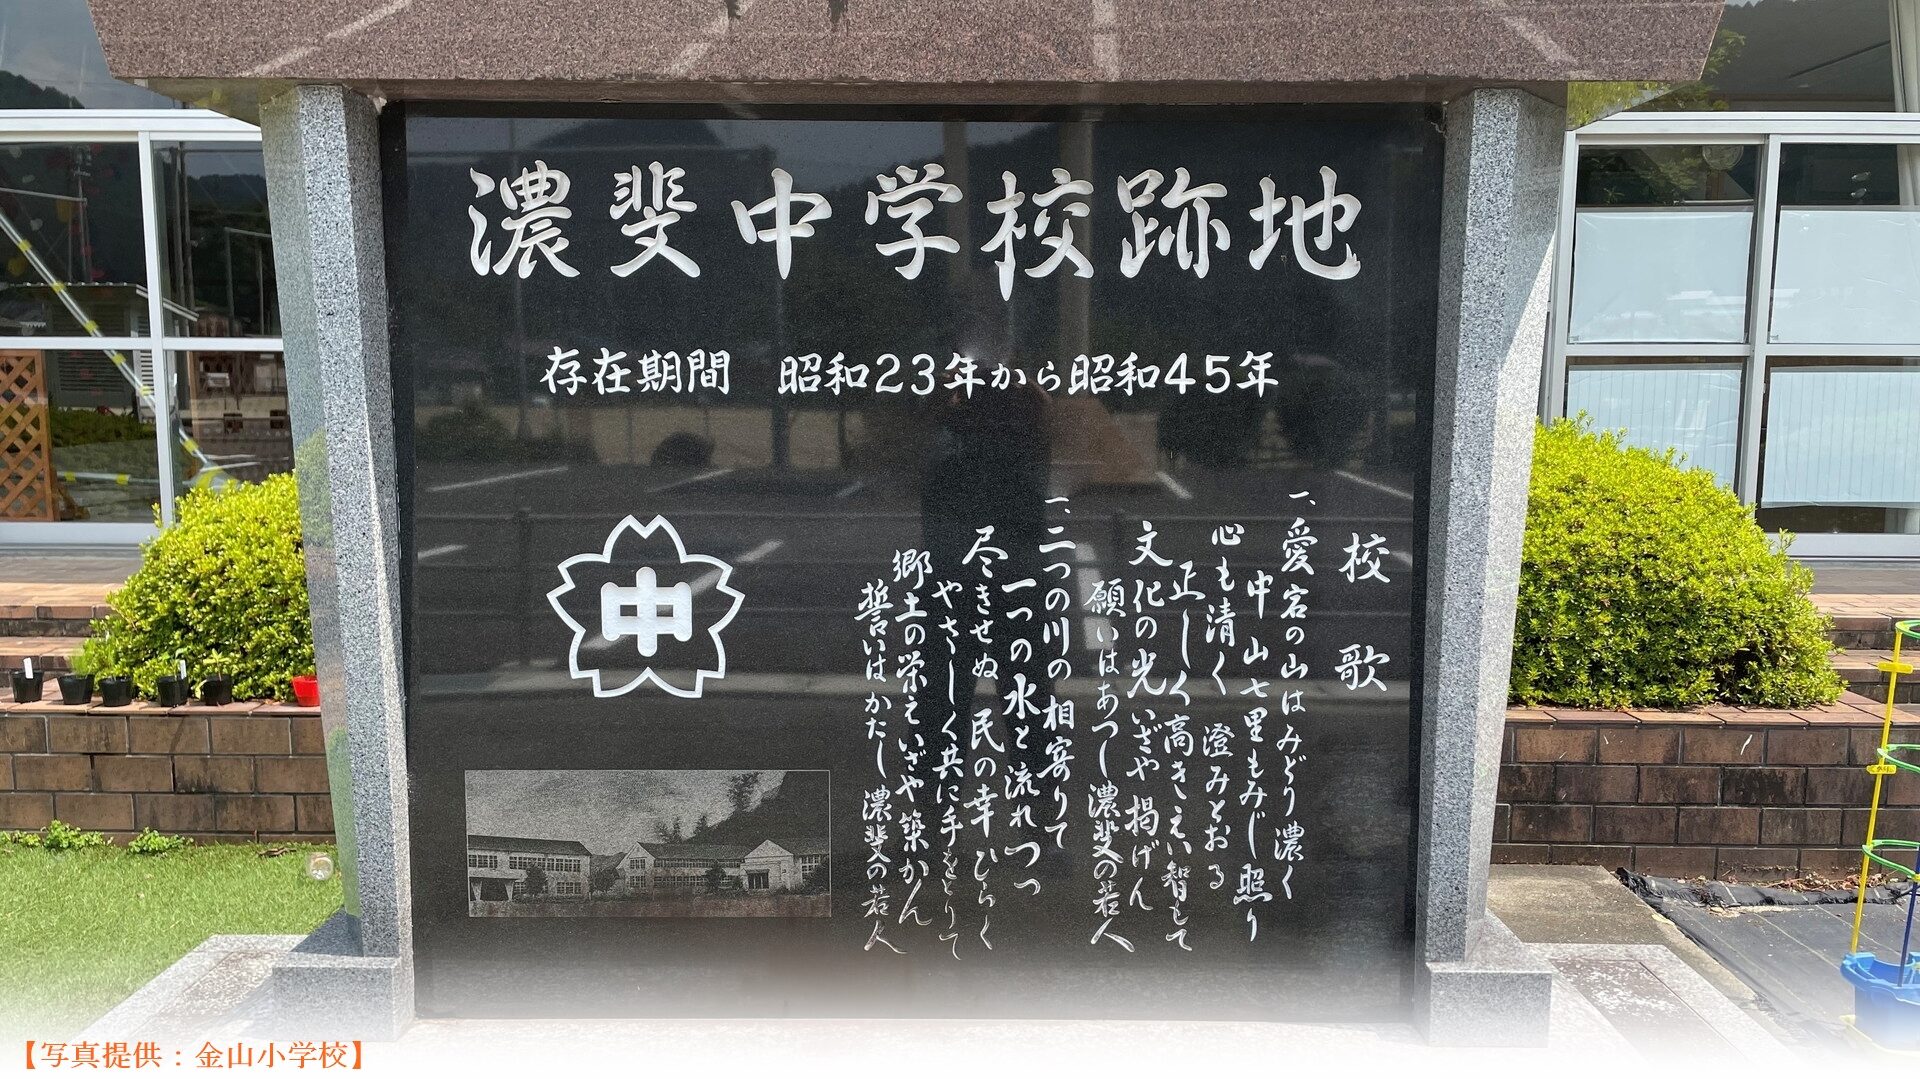 濃斐中学校跡地
存在期間 昭和23年から昭和45年
中
校歌
一、愛宕の山はみどり濃く
中山七里もみじ照り
心も清く 澄みとおる
正しく高きえい智もて
文化の光いざや掲げん
願いはあつし濃斐の若人
二、二つの川の相寄りて
一つの水と流れつつ
尽きせぬ 民の幸ひらく
やさしく共に手をとりて
郷土の栄えいざや築かん
誓いはかたし 濃斐の若人
【写真提供：金山小学校】